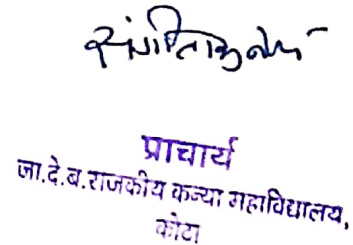 प्राचार्य
जा.दे.ब.राजकीय कन्या महाविद्यालय,
कोटा